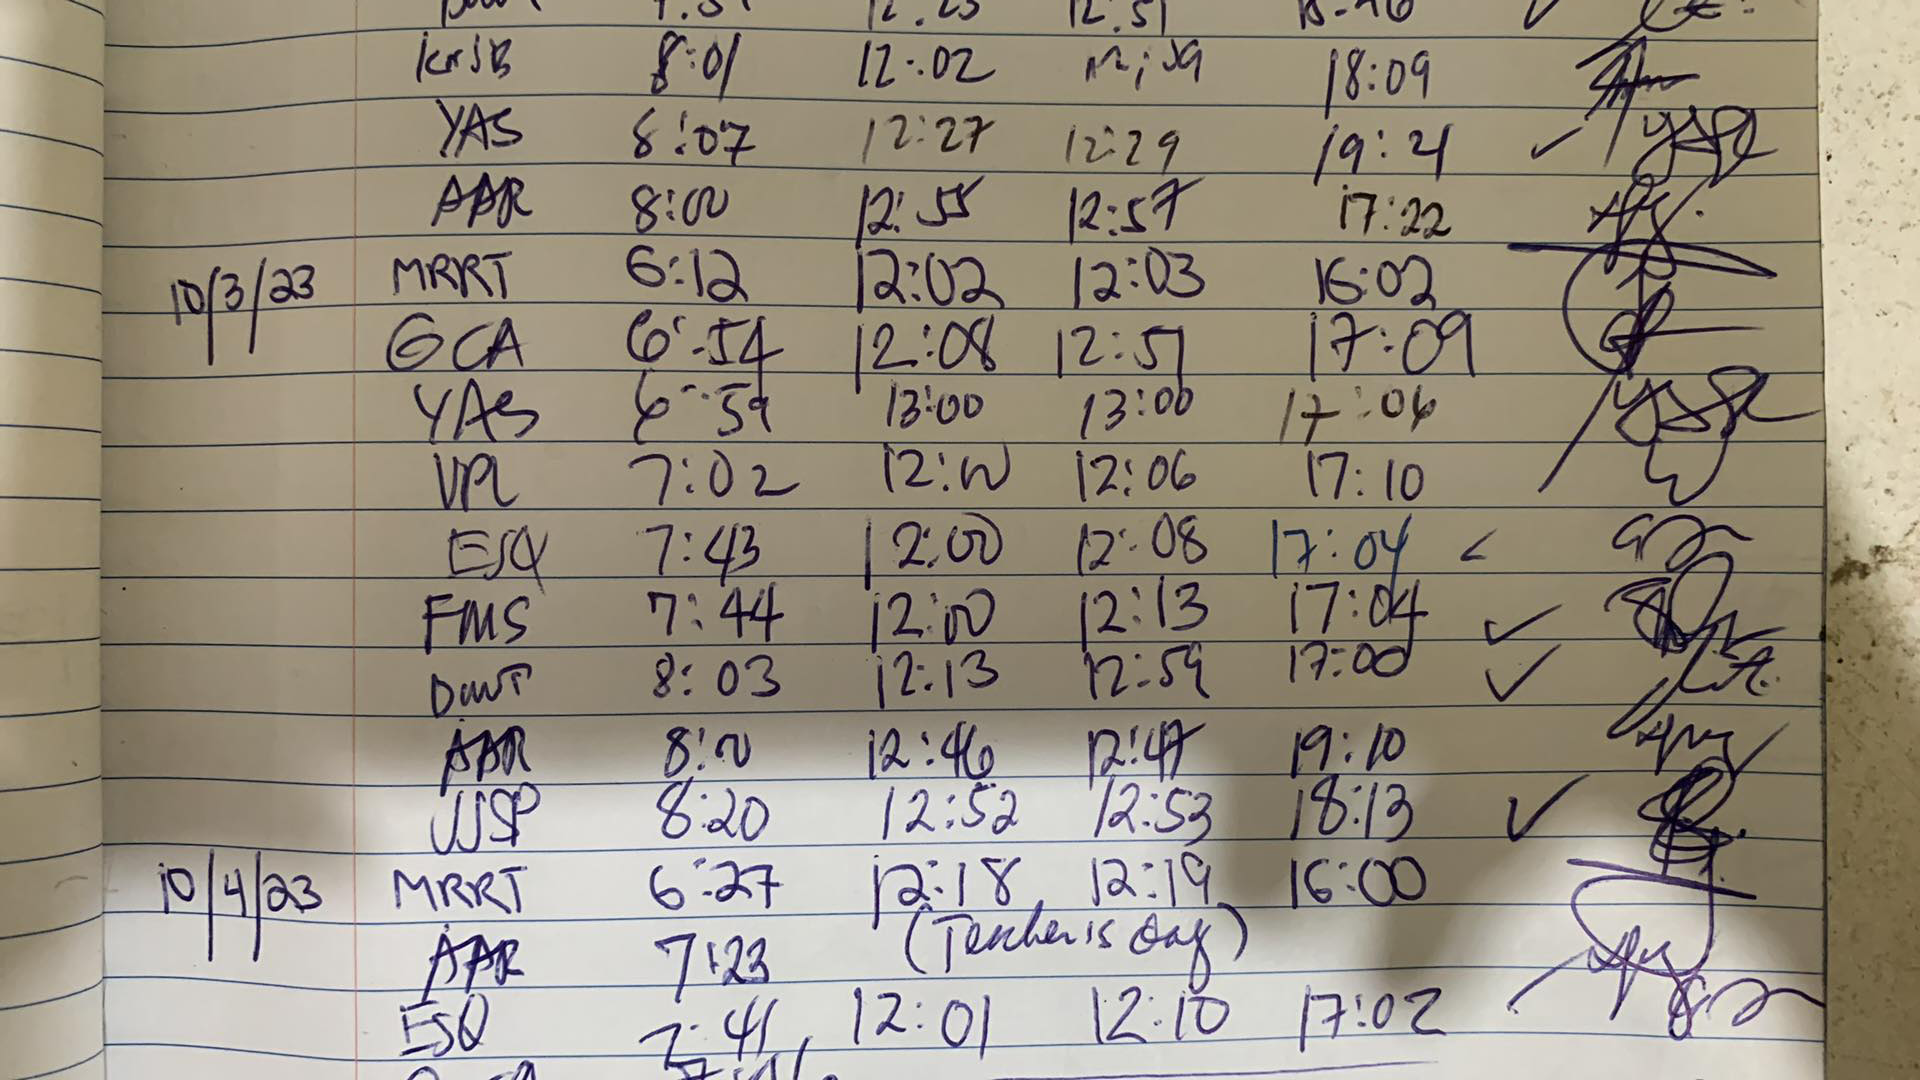 8:01 12:02 18:09
YAS 8:07 12:27 12:29 19:21 ✓
AAR 8:00 12:55 12:57 17:22
10/3/23 MRRT 6:12 12:02 12:03 16:02
GCA 6:54 12:08 12:51 17:09
YAS 6:59 13:00 13:00 17:06
VPL 7:02 12:00 12:06 17:10
ESQ 7:43 12:00 12:08 17:04
FMS 7:44 12:00 12:13 17:04 ✓
8:03 12:13 12:59 17:00 ✓
AAR 8:00 12:46 12:47 19:10
JJSP 8:20 12:52 12:53 18:13 ✓
10/4/23 MRRT 6:27 12:18 12:19 16:00
AAR 7:23 (Teacher's Day)
ESQ 7:41 12:01 12:10 17:02